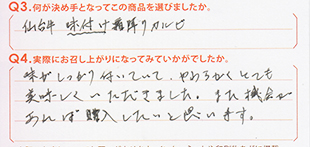 Q3.何が決め手となってこの商品を選びましたか。
仙台牛 味付け霜降りカルビ
Q4.実際にお召し上がりになってみていかがでしたか。
味がしっかり付いていて、やわらかくとても
美味しくいただきました。また機会が
あれば購入したいと思います。